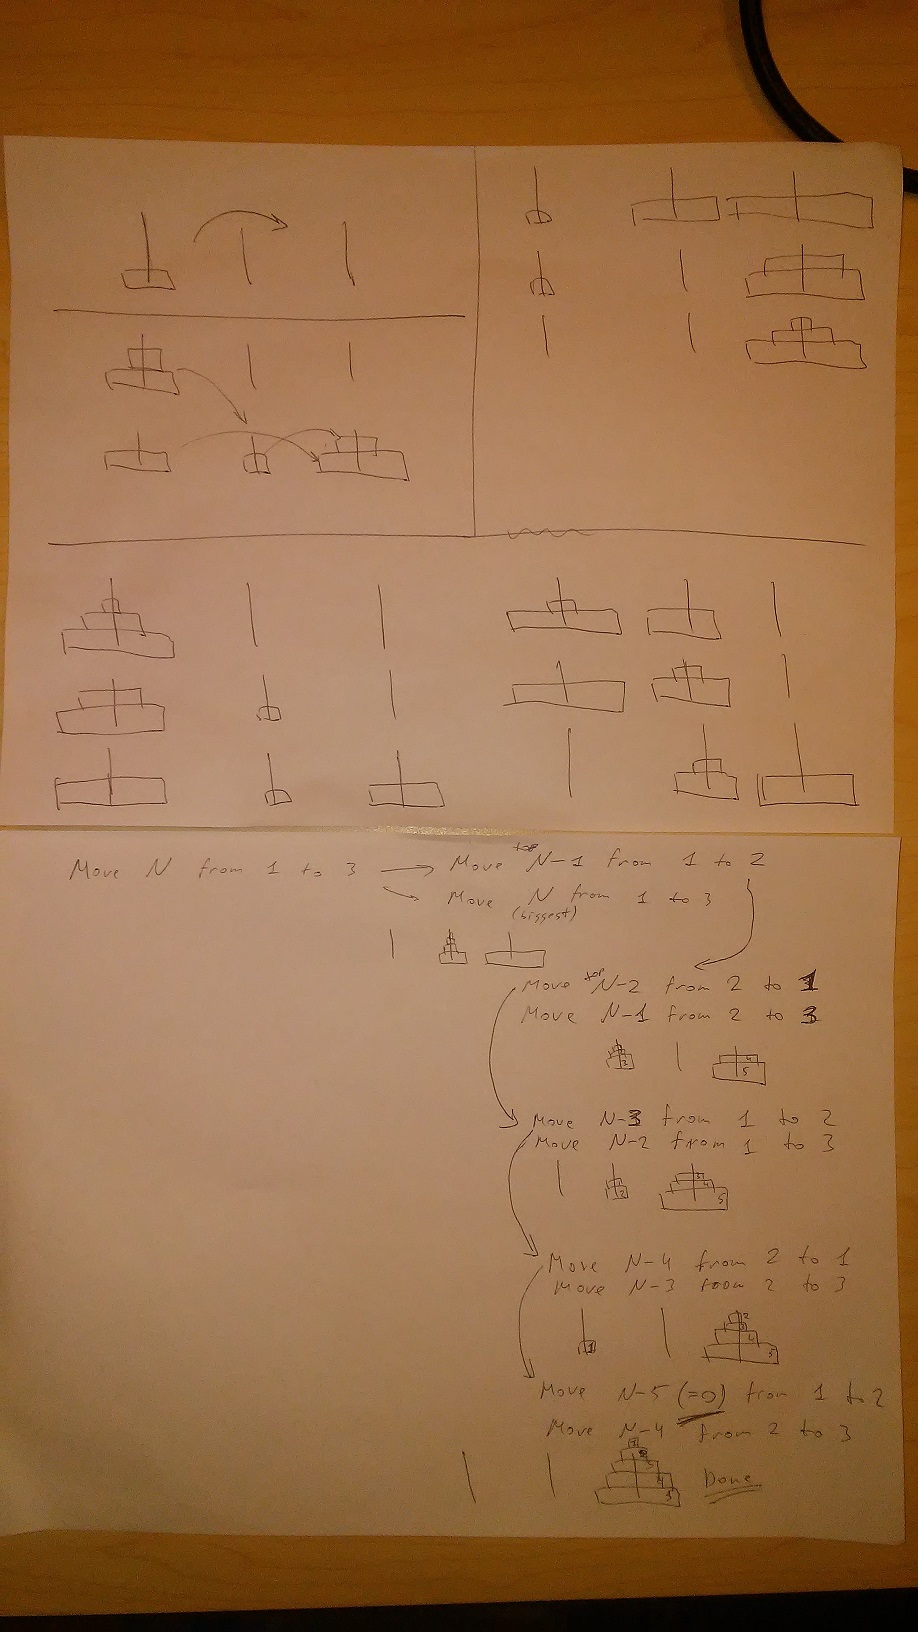 Move N from 1 to 3
Move top N-1 from 1 to 2
Move N from 1 to 3
(biggest)
Move top N-2 from 2 to 1
Move N-1 from 2 to 3
2
4
5
Move N-3 from 1 to 2
Move N-2 from 1 to 3
2
3
4
5
Move N-4 from 2 to 1
Move N-3 from 2 to 3
1
2
3
4
5
Move N-5 (=0) from 1 to 2
Move N-4 from 2 to 3
1
2
3
4
5
Done